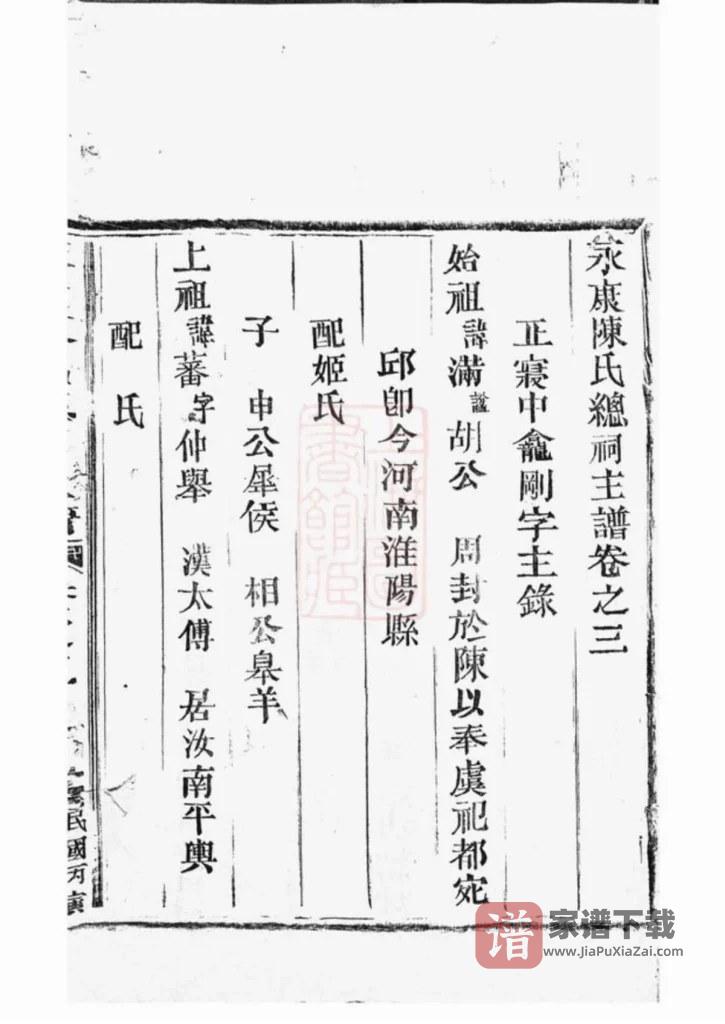 永康陳氏總祠主譜卷之三
正寢中龕剛字主錄
始祖諱滿諡胡公 周封於陳以奉虞祀都宛
邱卽今河南淮陽縣
配姬氏
子 申公犀侯 相公皋羊
上祖諱蕃字仲舉 漢太傅 居汝南平輿
配 氏
民國丙寅
谱
家谱下载
www.JiaPuXiaZai.com